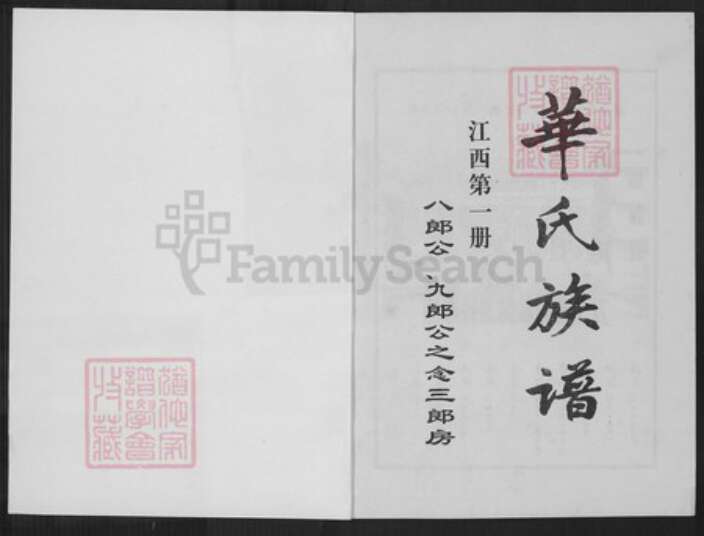 華氏族谱
江西第一册
八郎公、九郎公之念三郎房
FamilySearch
猶他家
譜學會
特藏
猶他家
譜學會
特藏